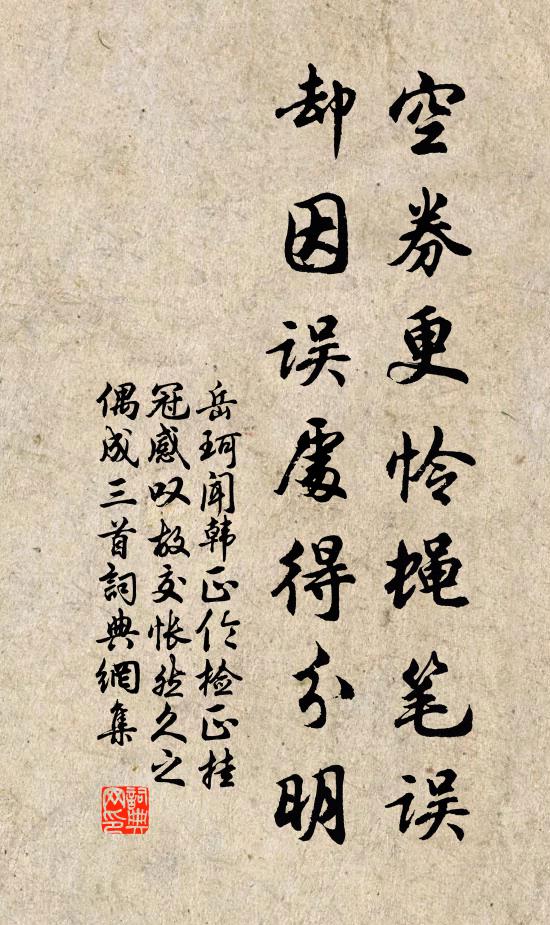 空券更怜蝇笔误
却因误處得分明
岳珂闻韩正伦检正挂
冠感叹故交怅然久之
偶成三首詞典網集
詞典网印